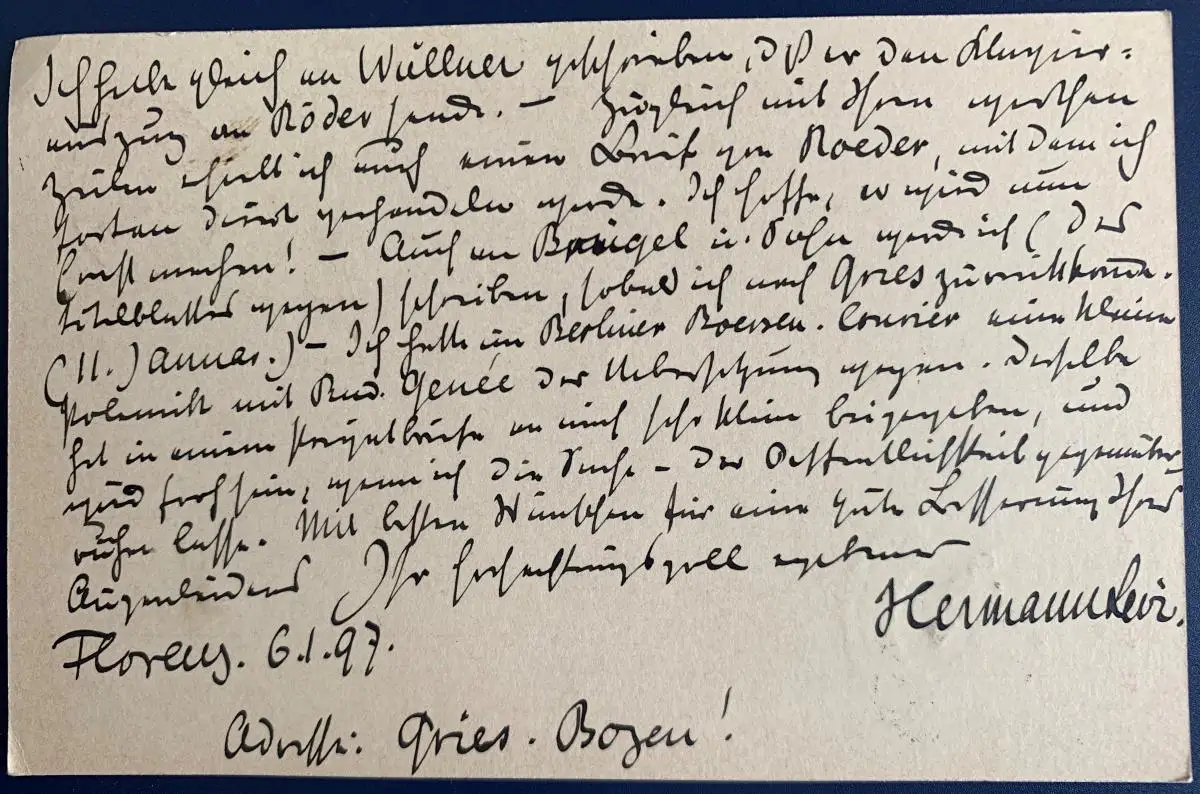 Ich habe gleich an Wüllner geschrieben, daß er den Klavier-
auszug an Röder sende. – Zugleich mit Ihren werthen
Zeilen erhielt ich auch einen Brief von Roeder, mit dem ich
fortan direct verhandeln werde. Ich hoffe, er wird nun
Ernst machen! – Auch an u. Sohn werde ich (des
Titelblattes wegen) schreiben, sobald ich nach Gries zurückkomme.
(11. Januar.) – Ich hatte im Berliner Boersen-Courier eine kleine
Polemik mit Rud. Genée der Uebersetzung wegen. Derselbe
hat in einem Privatbriefe an mich sehr klein beigegeben, und
wird froh sein, wenn ich die Sache – der Oeffentlichkeit gegenüber –
ruhen lasse. Mit besten Wünschen für eine gute Besserung Ihres
Augenleidens Ihr hochachtungsvoll ergebener
Hermann Levi.
Florenz. 6.1.97.
Adresse: Gries. Bozen!